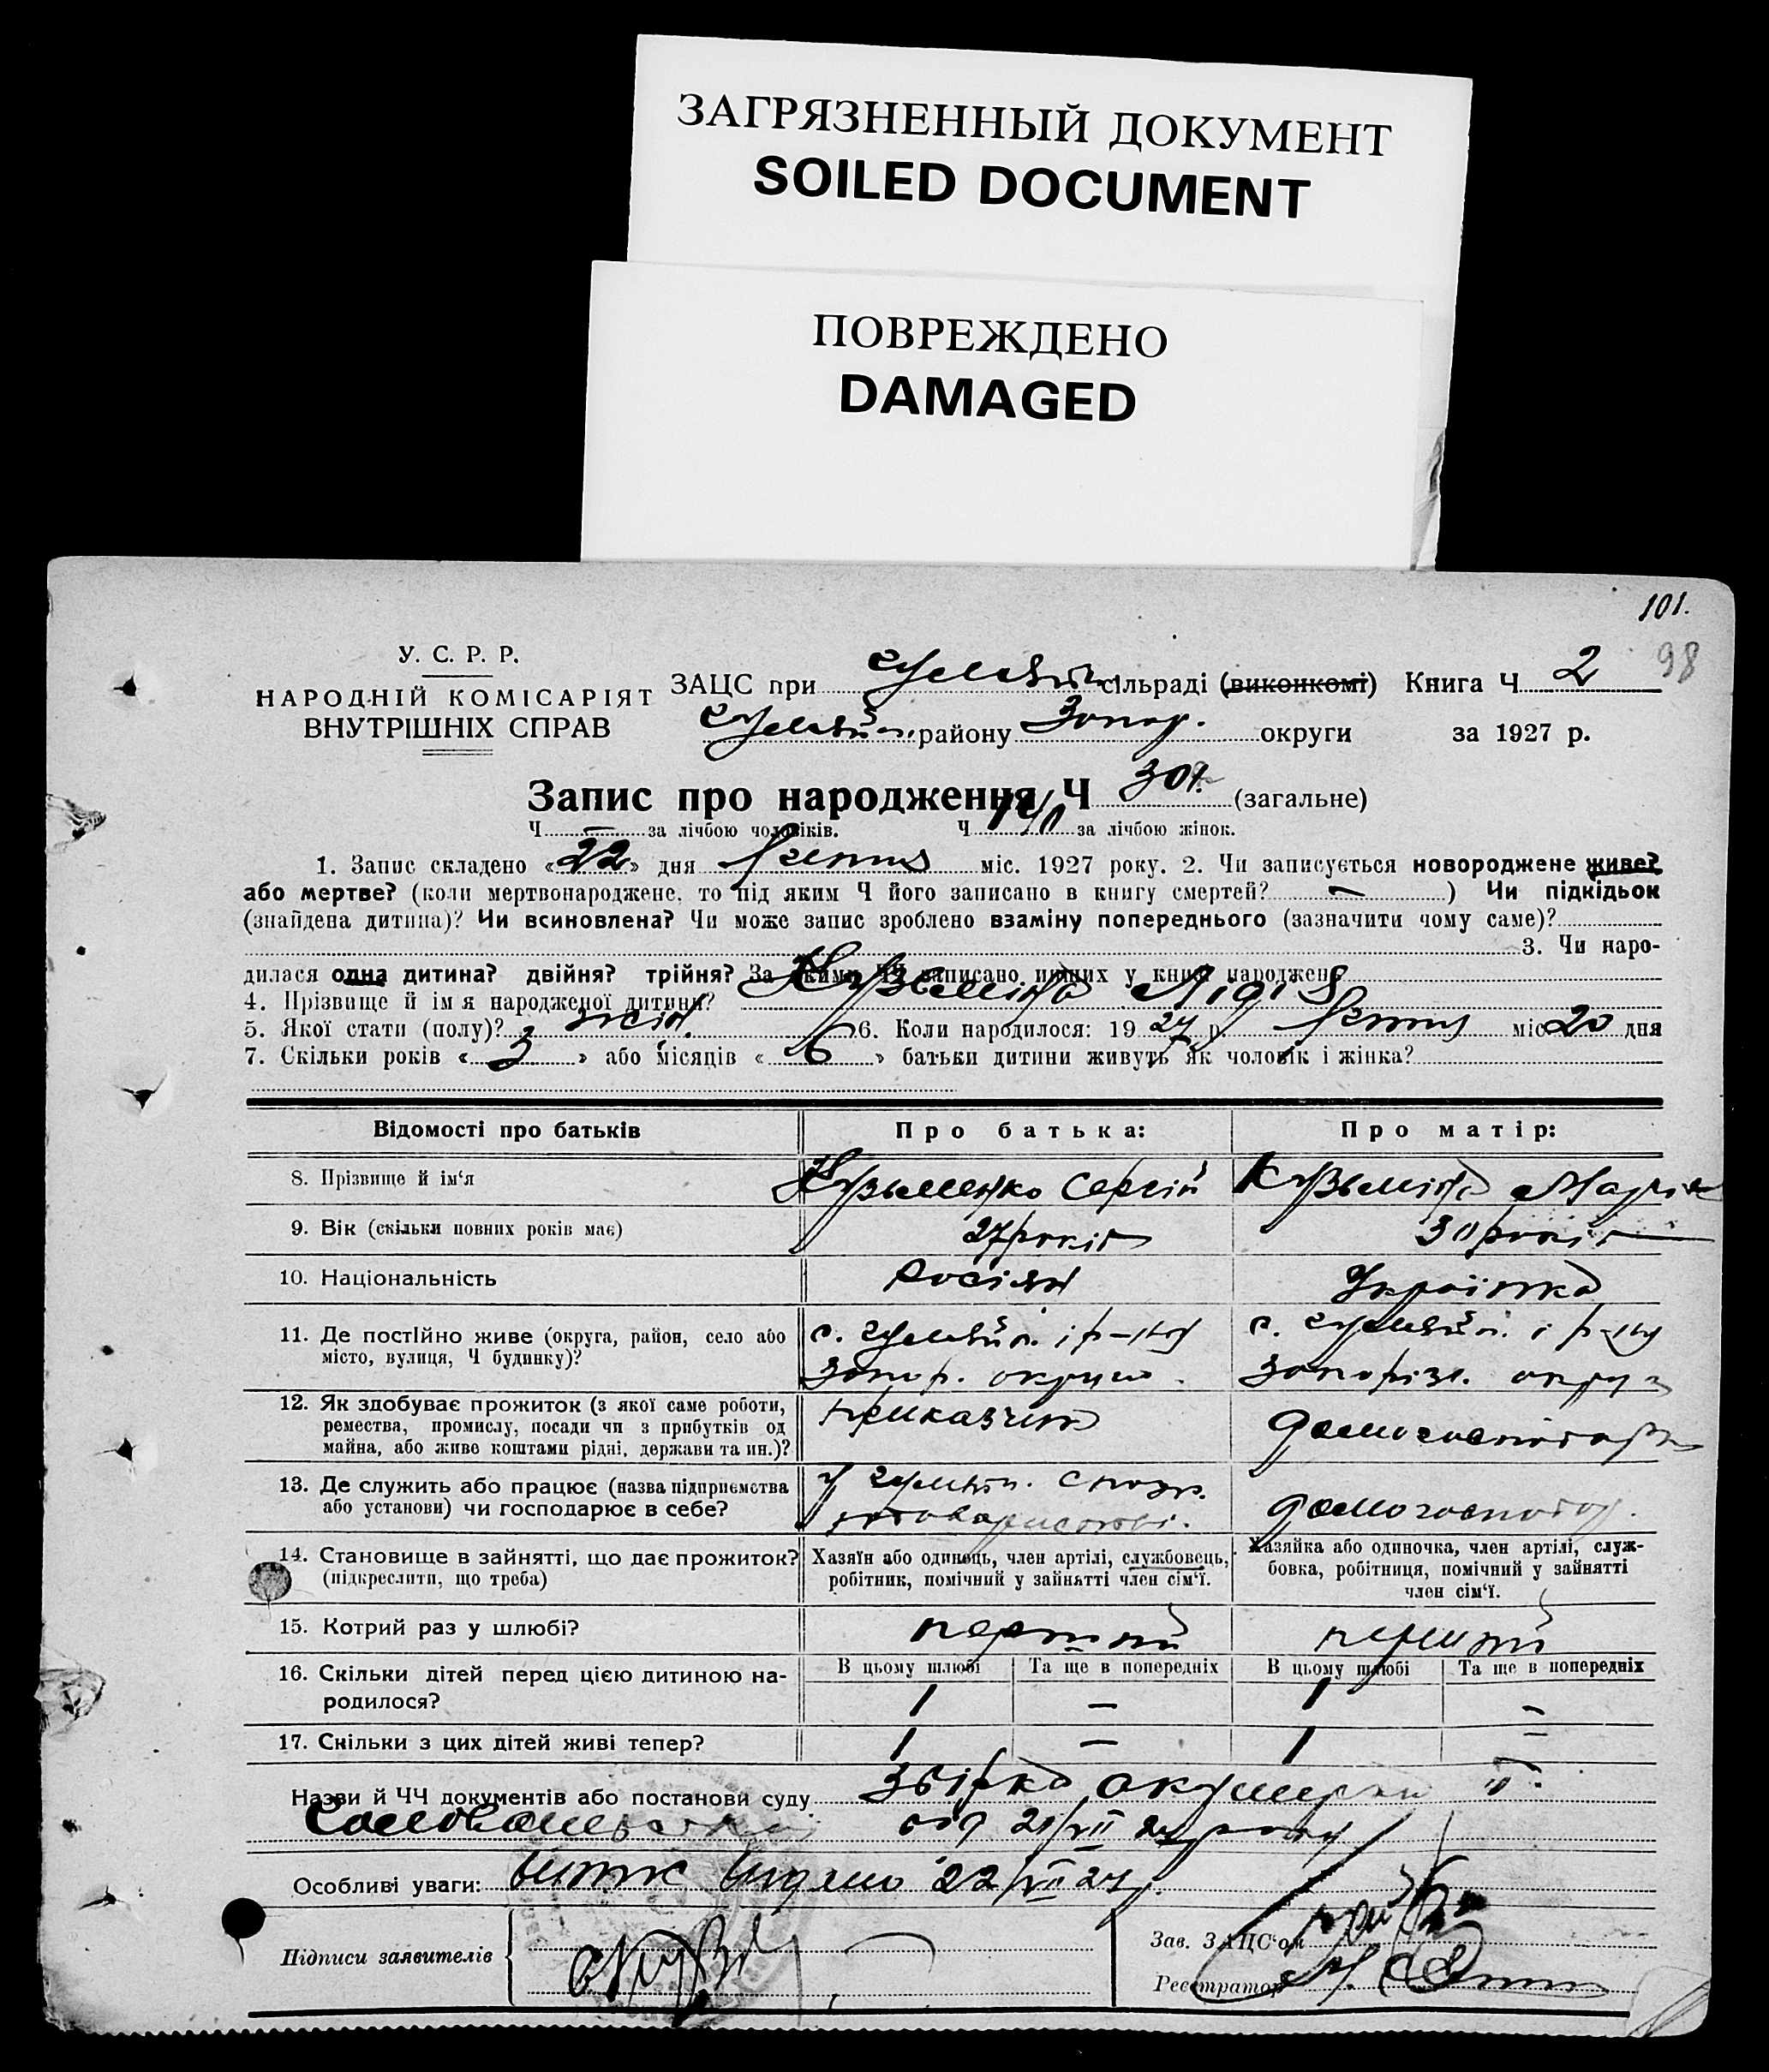 ЗАГРЯЗНЕННЫЙ ДОКУМЕНТ
SOILED DOCUMENT
ПОВРЕЖДЕНО
DAMAGED
101.
98
У. С. Р. Р.
НАРОДНІЙ КОМІСАРІЯТ
ВНУТРІШНІХ СПРАВ
ЗАЦС при сільраді (виконкомі) Книга Ч 2
району Запор. округи за 1927 р.
Запис про народження Ч 301 (загальне)
Ч — за лічбою чоловіків. Ч 140 за лічбою жінок.
1. Запис складено «22» дня липня міс. 1927 року. 2. Чи записується новороджене живе?
або мертве? (коли мертвонароджене, то під яким Ч його записано в книгу смертей? — ) Чи підкідьок
(знайдена дитина)? Чи всиновлена? Чи може запис зроблено взаміну попереднього (зазначити чому саме)?
3. Чи наро-
дилася одна дитина? двійня? трійня? За якими ЧЧ записано инших у книзі народжень
4. Прізвище й ім'я народженої дитини? Кузьмінко Лідія
5. Якої стати (полу)? жіноч. 6. Коли народилося: 1927 р. липня міс. 20 дня
7. Скільки років «3» або місяців «6» батьки дитини живуть як чоловік і жінка?
Відомості про батьків Про батька: Про матір:
8. Прізвище й ім'я Кузьменко Сергій Кузьмінко Марія
9. Вік (скільки повних років має) 27 років 30 років
10. Національність Росіян Українка
11. Де постійно живе (округа, район, село або
місто, вулиця, Ч будинку)? с. і р-ну с. і р-ну
Запор. округи Запорізк. округи
12. Як здобуває прожиток (з якої саме роботи,
ремества, промислу, посади чи з прибутків од
майна, або живе коштами рідні, держави та ин.)? приказчик домогосподарка
13. Де служить або працює (назва підприємства
або установи) чи господарює в себе? у спож. товаристві. домогоспод.
14. Становище в зайнятті, що дає прожиток?
(підкреслити, що треба)
Хазяїн або одинець, член артілі, службовець,
робітник, помічний у зайнятті член сім'ї.
Хазяйка або одиночка, член артілі, служ-
бовка, робітниця, помічний у зайнятті
член сім'ї.
15. Котрий раз у шлюбі? перший перший
16. Скільки дітей перед цією дитиною на-
родилося?
В цьому шлюбі Та ще в попередніх В цьому шлюбі Та ще в попередніх
1 — 1 —
17. Скільки з цих дітей живі тепер? 1 — 1 —
Назви й ЧЧ документів або постанови суду акушерки
від 21/VII 27 року
Особливі уваги: Витяг видано 22/VII 27 р.
Підписи заявителів
Зав. ЗАЦС'ом
Реєстратор